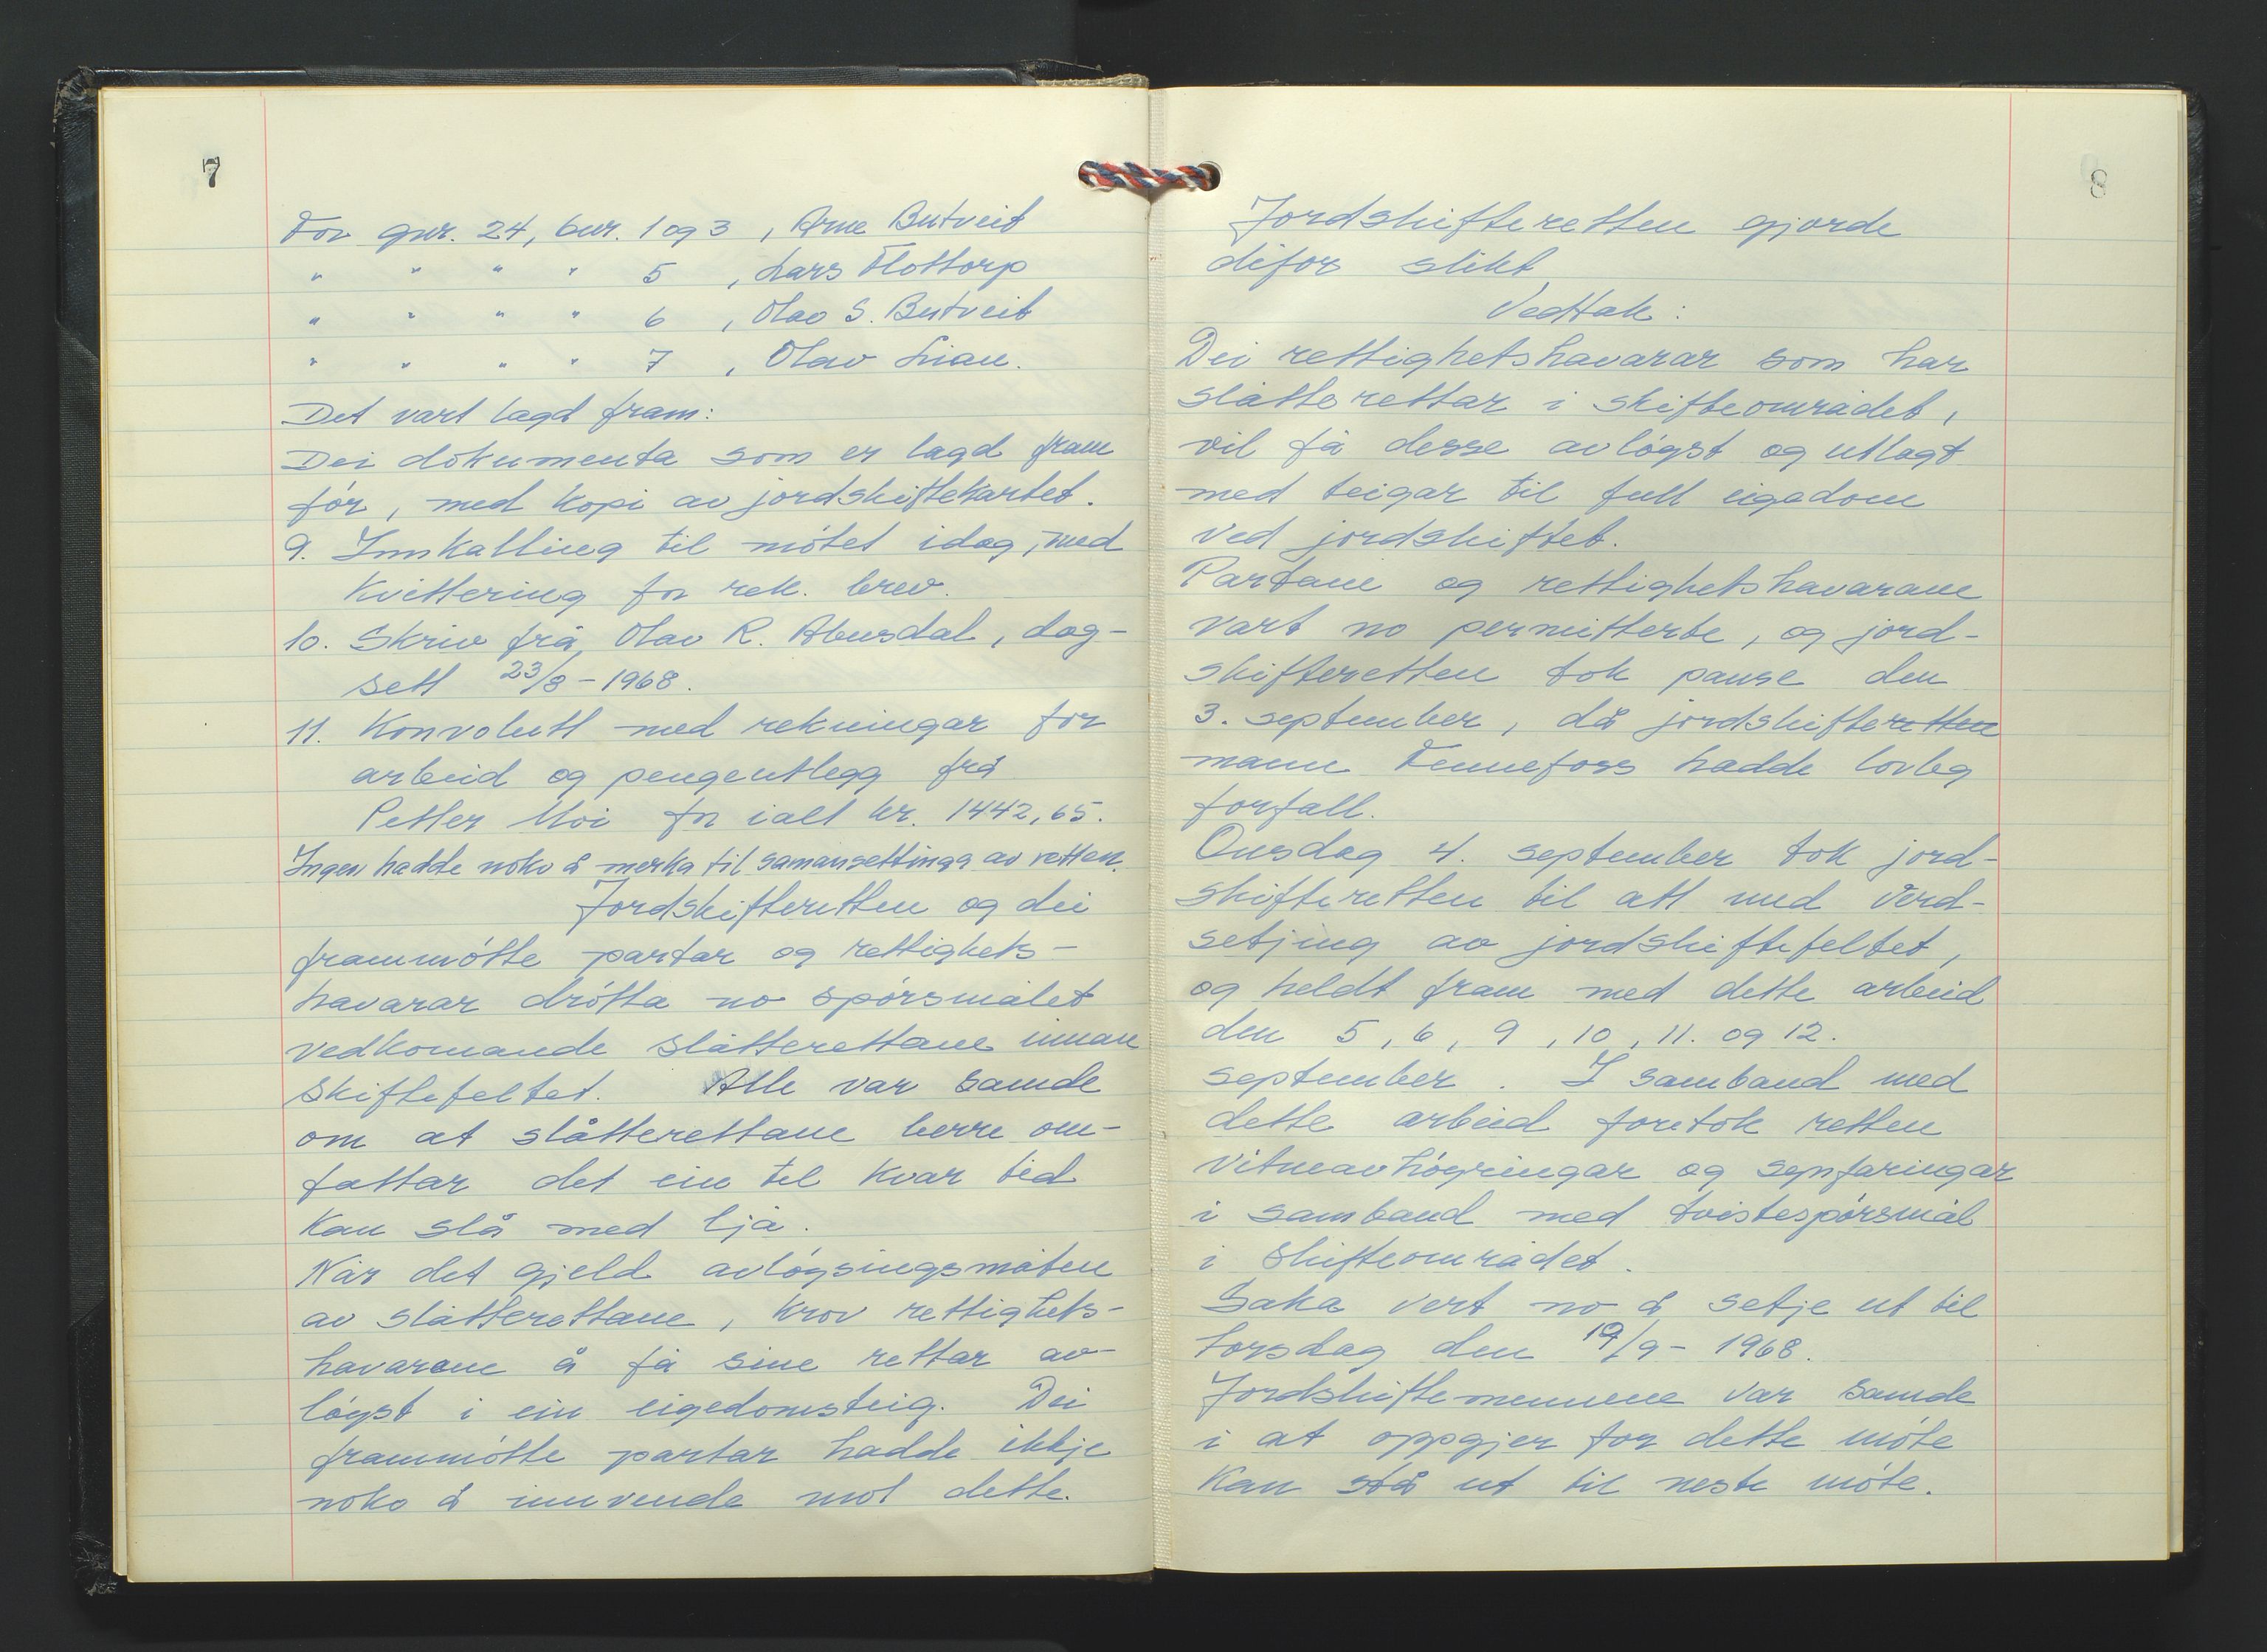 7
For gnr. 24, bnr. 1 og 3, Arne Butveit
" " " " 5, Lars Flottorp
" " " " 6, Olav S. Butveit
" " " " 7, Olav Lian.
Det vart lagd fram:
Dei dokumenta som er lagd fram
før, med kopi av jordskiftekartet.
9. Innkalling til møtet idag, med
kvittering for rek. brev.
10. Skriv frå Olav R. Abusdal, dag-
sett 23/8-1968.
11. Konvolutt med rekningar for
arbeid og pengeutlegg frå
Petter Moi for ialt kr. 1442,65.
Ingen hadde noko å merka til samansettinga av retten.
Jordskifteretten og dei
frammøtte partar og rettighets-
havarar drøfta no spørsmålet
vedkomande slåtterettane innan
skiftefeltet. Alle var samde
om at slåtterettane berre om-
fattar det ein til kvar tid
kan slå med ljå.
Når det gjeld avløysingsmåten
av slåtterettane, krov rettighets-
havarane å få sine rettar av-
løyst i ein eigedomsteig. Dei
frammøtte partar hadde ikkje
noko å innvende mot dette.
8
Jordskifteretten gjorde
difor slikt
Vedtak:
Dei rettighetshavarar som har
slåtterettar i skifteområdet,
vil få desse avløyst og utlagt
med teigar til full eigedom
ved jordskiftet.
Partane og rettighetshavarane
vart no permitterte, og jord-
skifteretten tok pause den
3. september, då jordskifteretten
mann Fennefoss hadde lovleg
forfall.
Onsdag 4. september tok jord-
skifteretten til att med verd-
setjing av jordskiftefeltet,
og heldt fram med dette arbeid
den 5, 6, 9, 10, 11. og 12.
september. I samband med
dette arbeid foretok retten
vitneavhøyringar og synfaringar
i samband med tvistespørsmål
i skifteområdet.
Saka vert no å setje ut til
torsdag den 19/9-1968.
Jordskiftemennene var samde
i at oppgjer for dette møte
kan stå ut til neste møte.